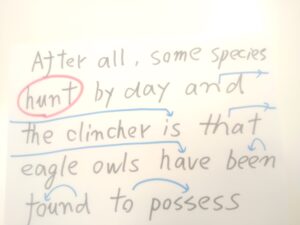 After all, some species
hunt by day and
the clincher is that
eagle owls have been
found to possess